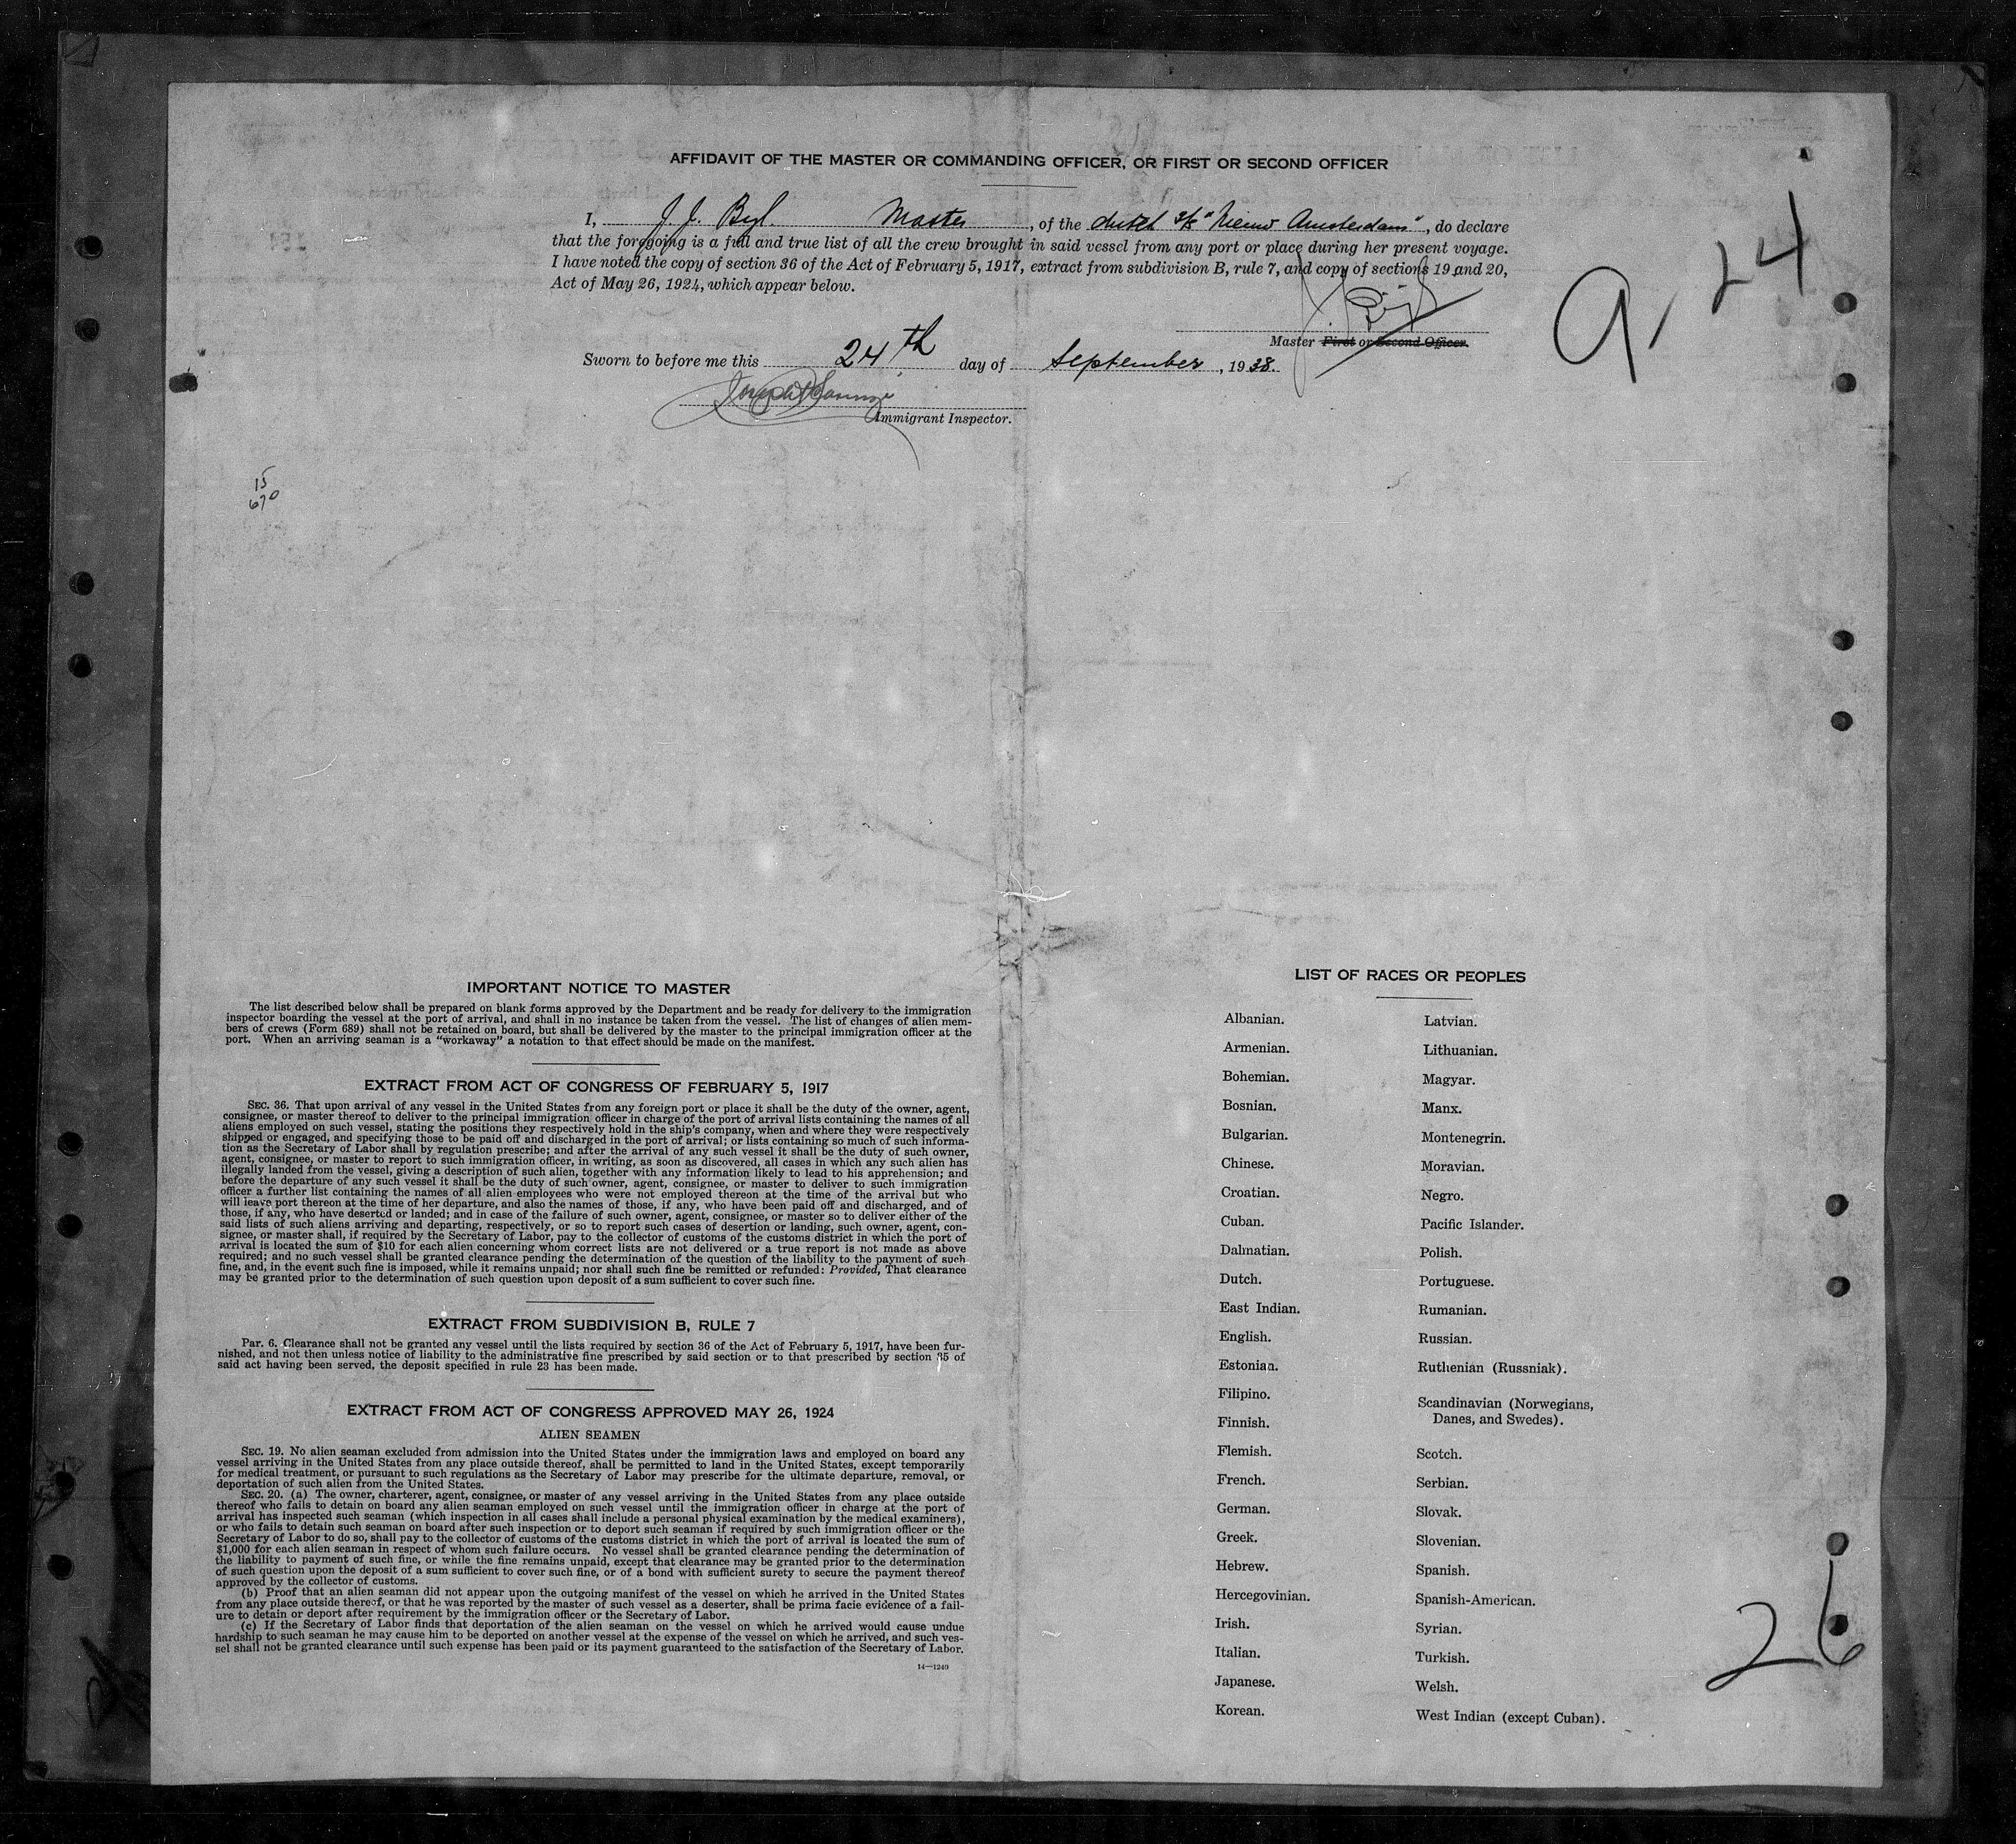 AFFIDAVIT OF THE MASTER OR COMMANDING OFFICER, OR FIRST OR SECOND OFFICER
I, J. J. Byl. Master, of the dutch s/s "Nieuw Amsterdam", do declare
that the foregoing is a full and true list of all the crew brought in said vessel from any port or place during her present voyage.
I have noted the copy of section 36 of the Act of February 5, 1917, extract from subdivision B, rule 7, and copy of sections 19 and 20,
Act of May 26, 1924, which appear below.
9, 24
Master First or Second Officer.
Sworn to before me this 24th day of September, 1938.
Immigrant Inspector.
15
670
IMPORTANT NOTICE TO MASTER
The list described below shall be prepared on blank forms approved by the Department and be ready for delivery to the immigration
inspector boarding the vessel at the port of arrival, and shall in no instance be taken from the vessel. The list of changes of alien mem-
bers of crews (Form 689) shall not be retained on board, but shall be delivered by the master to the principal immigration officer at the
port. When an arriving seaman is a "workaway" a notation to that effect should be made on the manifest.
EXTRACT FROM ACT OF CONGRESS OF FEBRUARY 5, 1917
SEC. 36. That upon arrival of any vessel in the United States from any foreign port or place it shall be the duty of the owner, agent,
consignee, or master thereof to deliver to the principal immigration officer in charge of the port of arrival lists containing the names of all
aliens employed on such vessel, stating the positions they respectively hold in the ship's company, when and where they were respectively
shipped or engaged, and specifying those to be paid off and discharged in the port of arrival; or lists containing so much of such informa-
tion as the Secretary of Labor shall by regulation prescribe; and after the arrival of any such vessel it shall be the duty of such owner,
agent, consignee, or master to report to such immigration officer, in writing, as soon as discovered, all cases in which any such alien has
illegally landed from the vessel, giving a description of such alien, together with any information likely to lead to his apprehension; and
before the departure of any such vessel it shall be the duty of such owner, agent, consignee, or master to deliver to such immigration
officer a further list containing the names of all alien employees who were not employed thereon at the time of the arrival but who
will leave port thereon at the time of her departure, and also the names of those, if any, who have been paid off and discharged, and of
those, if any, who have deserted or landed; and in case of the failure of such owner, agent, consignee, or master so to deliver either of the
said lists of such aliens arriving and departing, respectively, or so to report such cases of desertion or landing, such owner, agent, con-
signee, or master shall, if required by the Secretary of Labor, pay to the collector of customs of the customs district in which the port of
arrival is located the sum of $10 for each alien concerning whom correct lists are not delivered or a true report is not made as above
required; and no such vessel shall be granted clearance pending the determination of the question of the liability to the payment of such
fine, and, in the event such fine is imposed, while it remains unpaid; nor shall such fine be remitted or refunded: Provided, That clearance
may be granted prior to the determination of such question upon deposit of a sum sufficient to cover such fine.
EXTRACT FROM SUBDIVISION B, RULE 7
Par. 6. Clearance shall not be granted any vessel until the lists required by section 36 of the Act of February 5, 1917, have been fur-
nished, and not then unless notice of liability to the administrative fine prescribed by said section or to that prescribed by section 35 of
said act having been served, the deposit specified in rule 23 has been made.
EXTRACT FROM ACT OF CONGRESS APPROVED MAY 26, 1924
ALIEN SEAMEN
SEC. 19. No alien seaman excluded from admission into the United States under the immigration laws and employed on board any
vessel arriving in the United States from any place outside thereof, shall be permitted to land in the United States, except temporarily
for medical treatment, or pursuant to such regulations as the Secretary of Labor may prescribe for the ultimate departure, removal, or
deportation of such alien from the United States.
SEC. 20. (a) The owner, charterer, agent, consignee, or master of any vessel arriving in the United States from any place outside
thereof who fails to detain on board any alien seaman employed on such vessel until the immigration officer in charge at the port of
arrival has inspected such seaman (which inspection in all cases shall include a personal physical examination by the medical examiners),
or who fails to detain such seaman on board after such inspection or to deport such seaman if required by such immigration officer or the
Secretary of Labor to do so, shall pay to the collector of customs of the customs district in which the port of arrival is located the sum of
$1,000 for each alien seaman in respect of whom such failure occurs. No vessel shall be granted clearance pending the determination of
the liability to payment of such fine, or while the fine remains unpaid, except that clearance may be granted prior to the determination
of such question upon the deposit of a sum sufficient to cover such fine, or of a bond with sufficient surety to secure the payment thereof
approved by the collector of customs.
(b) Proof that an alien seaman did not appear upon the outgoing manifest of the vessel on which he arrived in the United States
from any place outside thereof, or that he was reported by the master of such vessel as a deserter, shall be prima facie evidence of a fail-
ure to detain or deport after requirement by the immigration officer or the Secretary of Labor.
(c) If the Secretary of Labor finds that deportation of the alien seaman on the vessel on which he arrived would cause undue
hardship to such seaman he may cause him to be deported on another vessel at the expense of the vessel on which he arrived, and such ves-
sel shall not be granted clearance until such expense has been paid or its payment guaranteed to the satisfaction of the Secretary of Labor.
14—1240
LIST OF RACES OR PEOPLES
Albanian.
Armenian.
Bohemian.
Bosnian.
Bulgarian.
Chinese.
Croatian.
Cuban.
Dalmatian.
Dutch.
East Indian.
English.
Estonian.
Filipino.
Finnish.
Flemish.
French.
German.
Greek.
Hebrew.
Hercegovinian.
Irish.
Italian.
Japanese.
Korean.
Latvian.
Lithuanian.
Magyar.
Manx.
Montenegrin.
Moravian.
Negro.
Pacific Islander.
Polish.
Portuguese.
Rumanian.
Russian.
Ruthenian (Russniak).
Scandinavian (Norwegians,
Danes, and Swedes).
Scotch.
Serbian.
Slovak.
Slovenian.
Spanish.
Spanish-American.
Syrian.
Turkish.
Welsh.
West Indian (except Cuban).
26